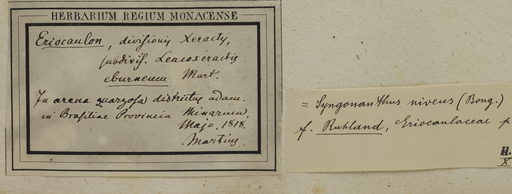 HERBARIUM REGIUM MONACENSE
Eriocaulon, divisionis Xeractis,
subdivis. Leucoxeractis
eburneum Mart.
In arena quarzosa districtus adam.
in Brasiliae Provincia Minarum
Majo. 1818.
Martius
= Syngonanthus niveus (Bong.)
f. Ruhland, Eriocaulaceae p
H.
X